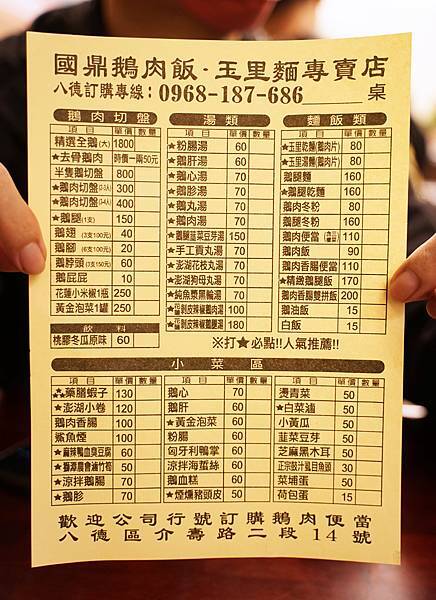 國鼎鵝肉飯·玉里麵專賣店
八德訂購專線：0968-187-686______桌
鵝肉切盤
項目 單價 數量
精選全鵝(大) 1800
★去骨鵝肉 時價一兩50元
半隻鵝肉切盤 800
★鵝肉切盤(2-3人) 300
★鵝肉切盤(3-4人) 400
★鵝腿(1支) 150
鵝翅 (3支100元) 40
鵝腳 (6支100元) 20
鵝脖頭(3支150元) 60
鵝屁屁 10
花蓮小米椒1瓶 250
黃金泡菜1罐 250
飲料
桃膠冬瓜原味 60
湯類
項目 單價 數量
★粉腸湯 60
★鵝肝湯 60
★鵝心湯 70
★鵝胗湯 70
★鵝丸湯 70
★鵝肉湯 70
★鵝腿韮菜豆芽湯 150
★手工貢丸湯 70
★澎湖花枝丸湯 70
★澎湖狗母丸湯 70
★魷魚漿黑輪湯 70
★花蓮剝皮辣椒鵝肉湯 100
★花蓮剝皮辣椒鵝腿湯 180
麵飯類
項目 單價 數量
★玉里乾麵(鵝肉片) 80
★玉里湯麵(鵝肉片) 80
鵝腿麵 160
★鵝腿乾麵 160
鵝肉冬粉 80
鵝肉冬粉 80
鵝肉便當 110
鵝肉飯 90
鵝肉香腸便當 110
★精緻鵝腿飯 170
鵝肉香腸雙拼飯 200
鵝油飯 15
白飯 15
※打★必點!!人氣推薦!!
小菜區
項目 單價 數量 項目 單價 數量 項目 單價 數量
藥膳蝦子 130 鵝心 70 燙青菜 50
★澎湖小卷 120 鵝肝 60 ★白菜滷 50
鵝肉香腸 70 ★黃金泡菜 60 小黃瓜 50
鯊魚煙 100 粉腸 60 韮菜豆芽 50
★麻辣鴨血臭豆腐 60 匈牙利鴨掌 60 芝麻黑木耳 50
★獅潭農會滷竹筍 50 涼拌海蜇絲 60 正宗豉汁虱目魚頭 30
★涼拌鵝腸 70 鵝血糕 60 菜埔蛋 50
★鵝胗 70 ★煙燻豬頭皮 50 荷包蛋 15
歡迎公司行號訂購鵝肉便當
八德區介壽路二段14號